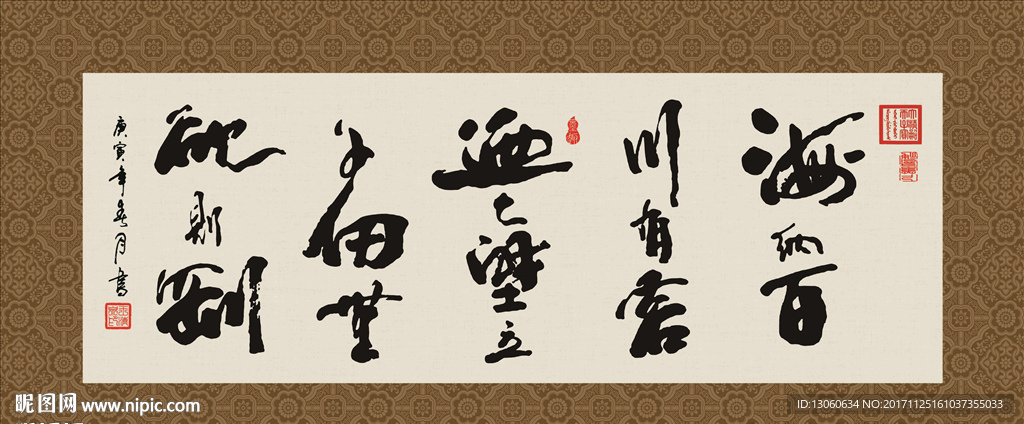 海納百
川有容
迺大壁立
千仞無
欲則剛
庚寅年春月書
昵图网 www.nipic.com
ID:13060634 NO:20171125161037355033